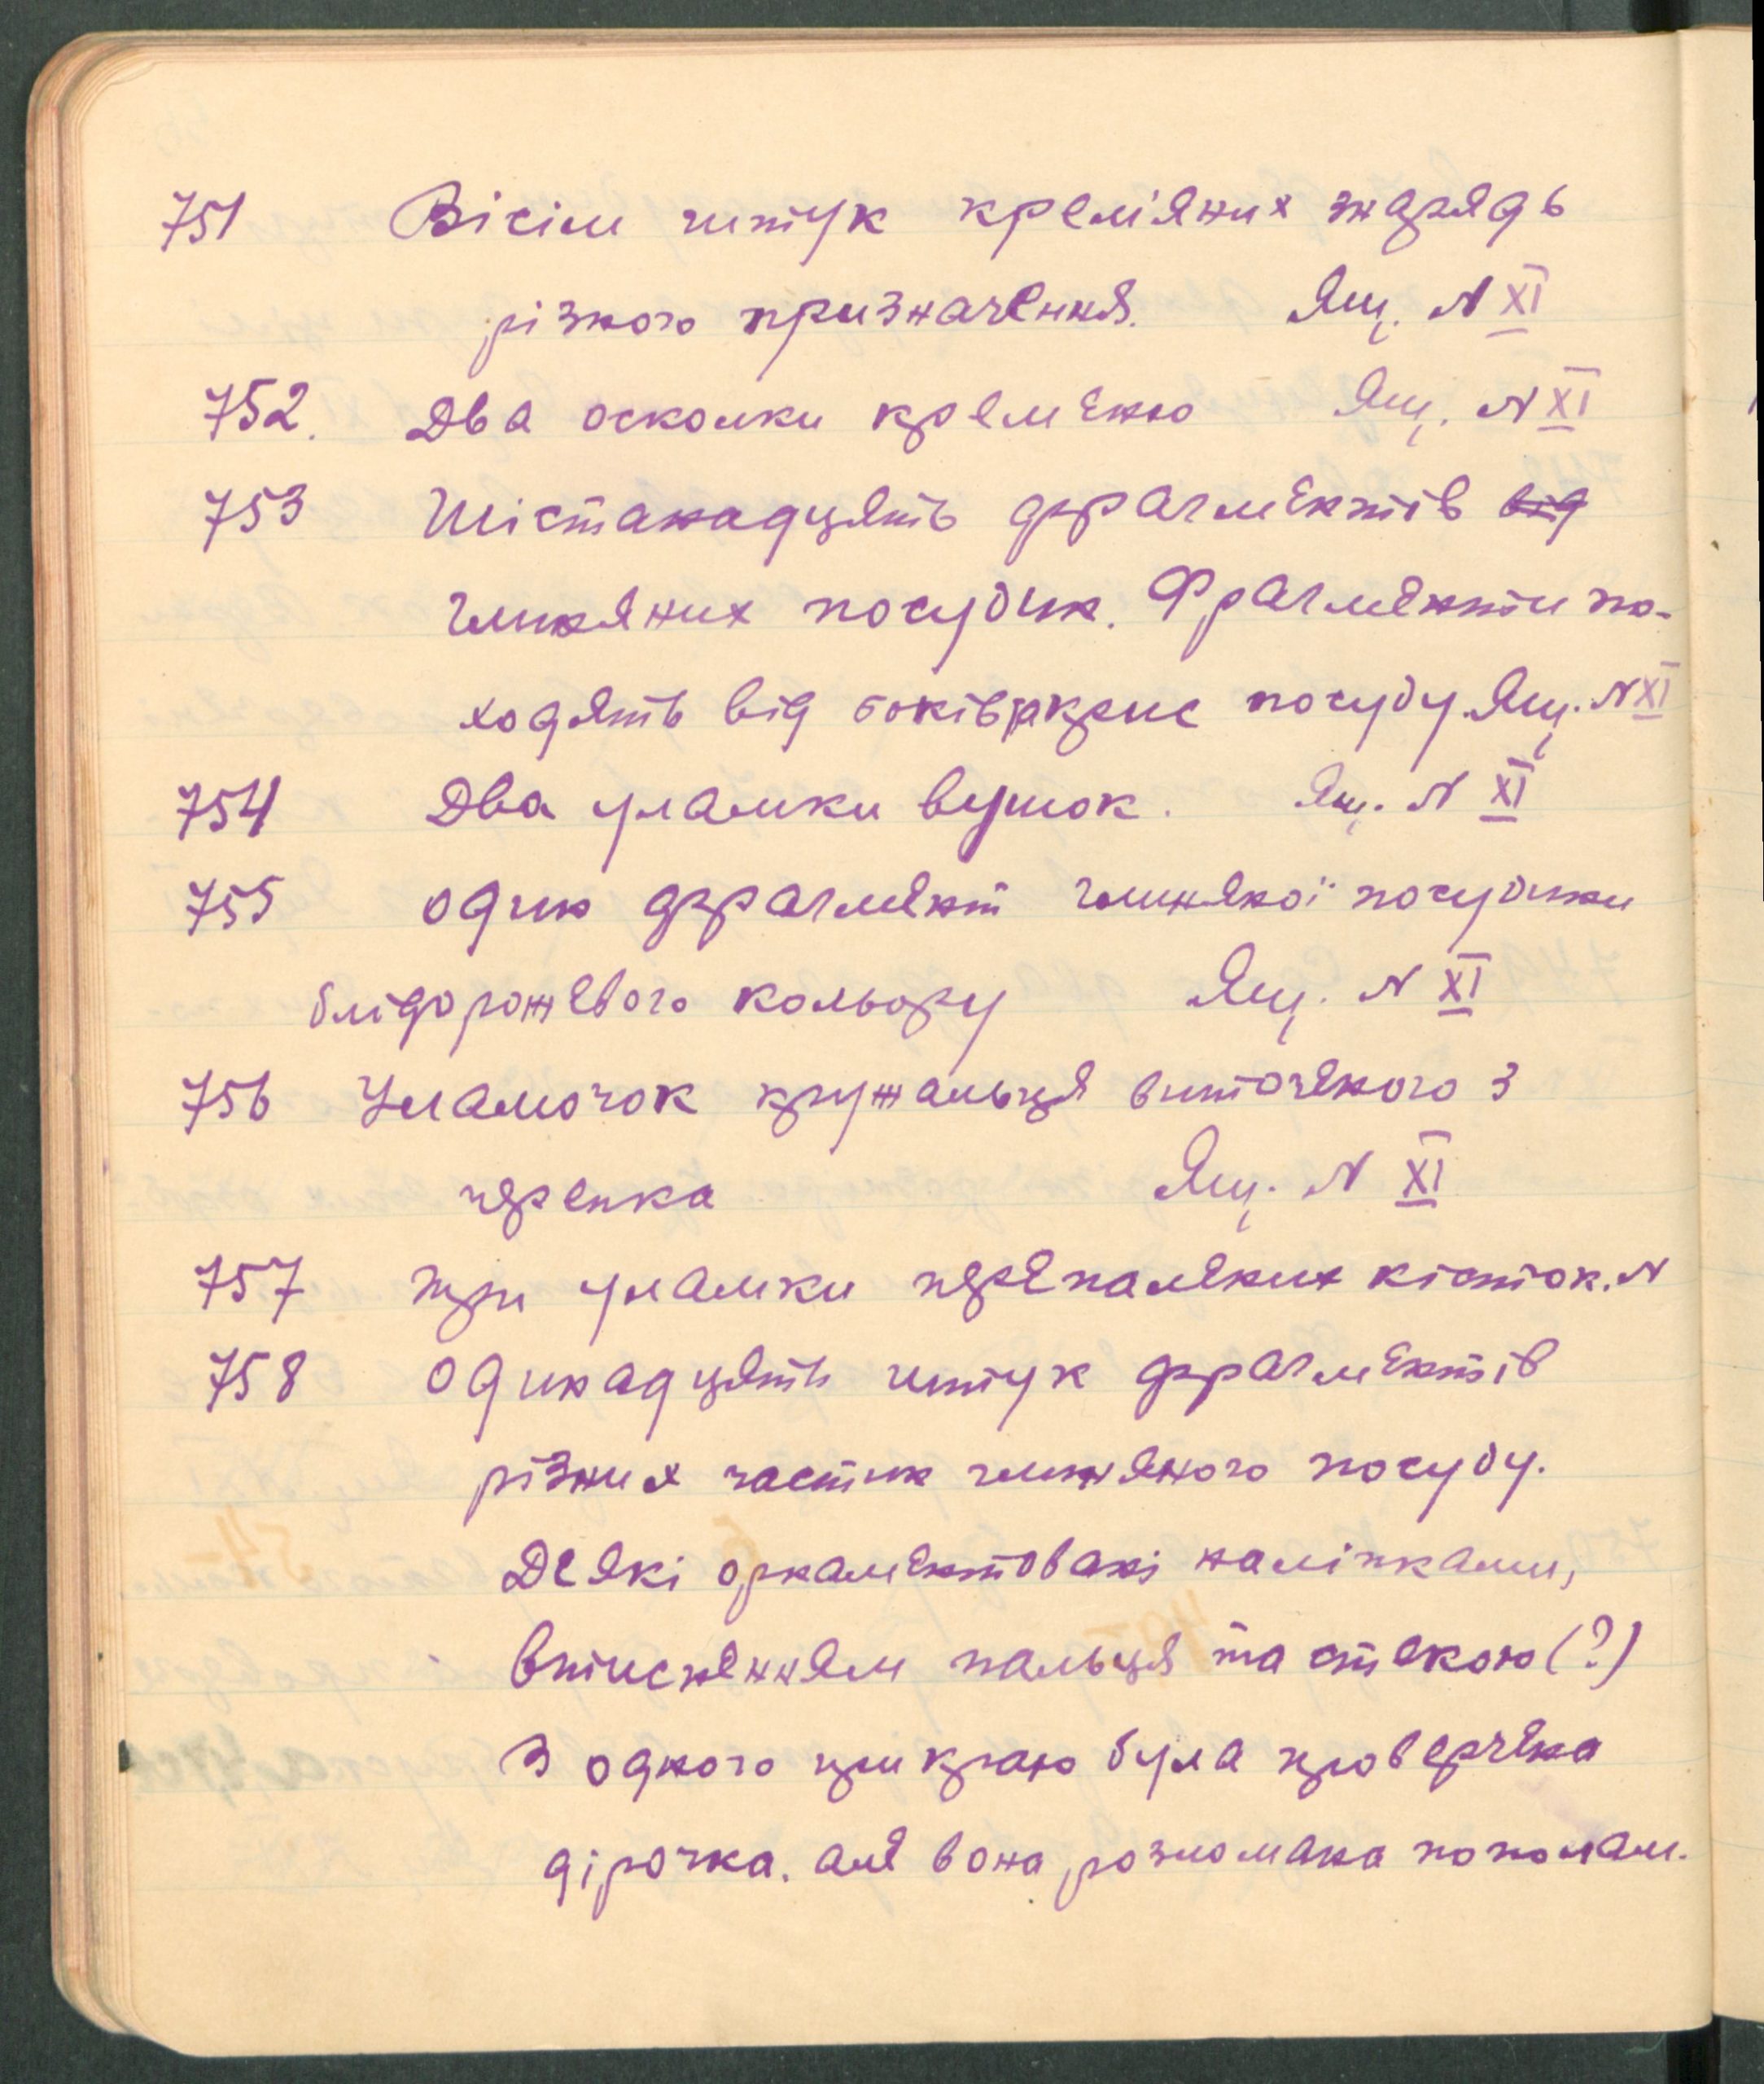 751 Вісім штук кремʼяних знарядь
різного призначення. Ящ. N XI
752. Два осколки кременю Ящ. N XI
753 Шістанадцять фрагментів від
глиняних посудин. Фрагменти по-
ходять від боків посуду. Ящ. N XI
754 Два уламки вушок. Ящ. N XI
755 один фрагмент глиняної посудини
блідорожевого кольору Ящ. N XI
756 Уламочок кружальця виточеного з
черепка Ящ. N XI
757 три уламки перепалених кісток. N
758 Одинадцять штук фрагментів
різних частин глиняного посуду.
Деякі орнаментовані наліпками,
втисненням пальця та стекою (?)
З одного при краю була проверчена
дірочка. але вона розломана пополам.